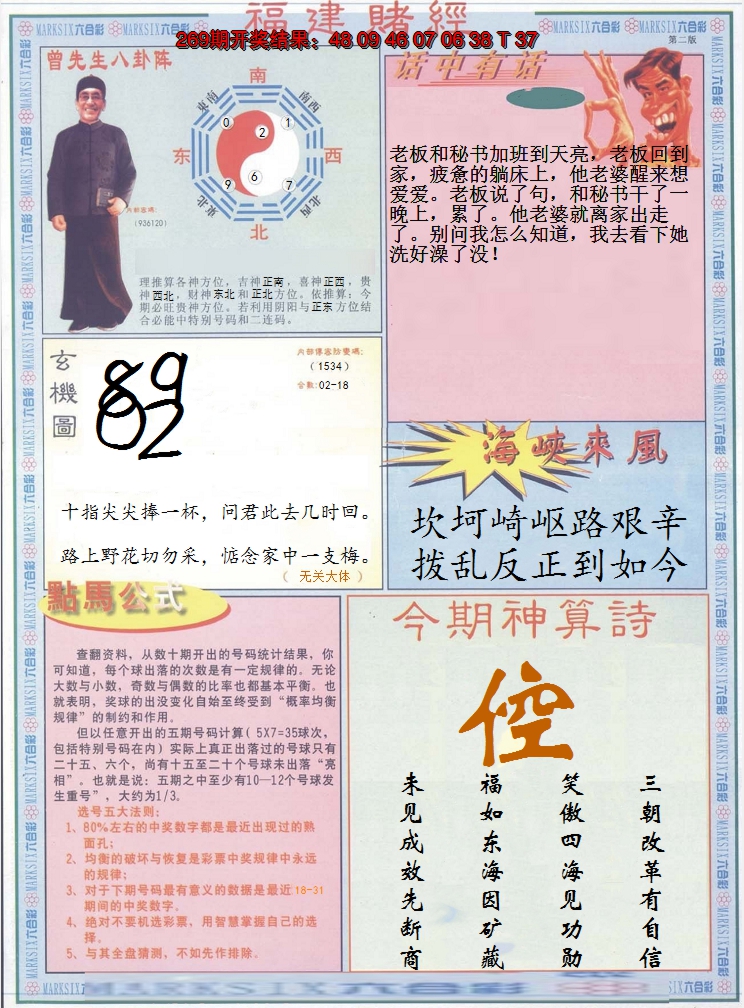 福建賭經
269期开奖结果：48 09 46 07 06 38 T 37
第二版
曾先生八卦阵
南
东南
南西
0
1
2
东
西
9
6
7
東北
北西
北
内部密碼:
(936120)
理推算各神方位，吉神正南，喜神正西，贵
神西北，财神东北和正北方位。依推算：今
期必旺贵神方位。若利用阴阳与正东方位结
合必能中特别号码和二连码。
话中有话
老板和秘书加班到天亮，老板回到
家，疲惫的躺床上，他老婆醒来想
爱爱。老板说了句，和秘书干了一
晚上，累了。他老婆就离家出走
了。别问我怎么知道，我去看下她
洗好澡了没！
玄機圖
89
02
(1534)
合数:02-18
十指尖尖捧一杯，问君此去几时回。
路上野花切勿采，惦念家中一支梅。
（ 无关大体 ）
海峽來風
坎坷崎岖路艰辛
拨乱反正到如今
點馬公式
查翻资料，从数十期开出的号码统计结果，你
可知道，每个球出落的次数是有一定规律的。无论
大数与小数，奇数与偶数的比率也都基本平衡。也
就表明，奖球的出没变化自始至终受到“概率均衡
规律”的制约和作用。
但以任意开出的五期号码计算( 5X7=35球次，
包括特别号码在内) 实际上真正出落过的号球只有
二十五、六个，尚有十五至二十个号球未出落“亮
相”。也就是说：五期之中至少有10—12个号球发
生重号”，大约为1/3。
选号五大法则：
1、80%左右的中奖数字都是最近出现过的熟
面孔；
2、均衡的破坏与恢复是彩票中奖规律中永远
的规律；
3、对于下期号码最有意义的数据是最近18-31
期间的中奖数字。
4、绝对不要机选彩票，用智慧掌握自己的选
择。
5、与其全盘猜测，不如先作排除。
今期神算詩
倥
三朝改革有自信
笑傲四海见功勋
福如东海因矿藏
未见成效先断商
MARKSIX六合彩